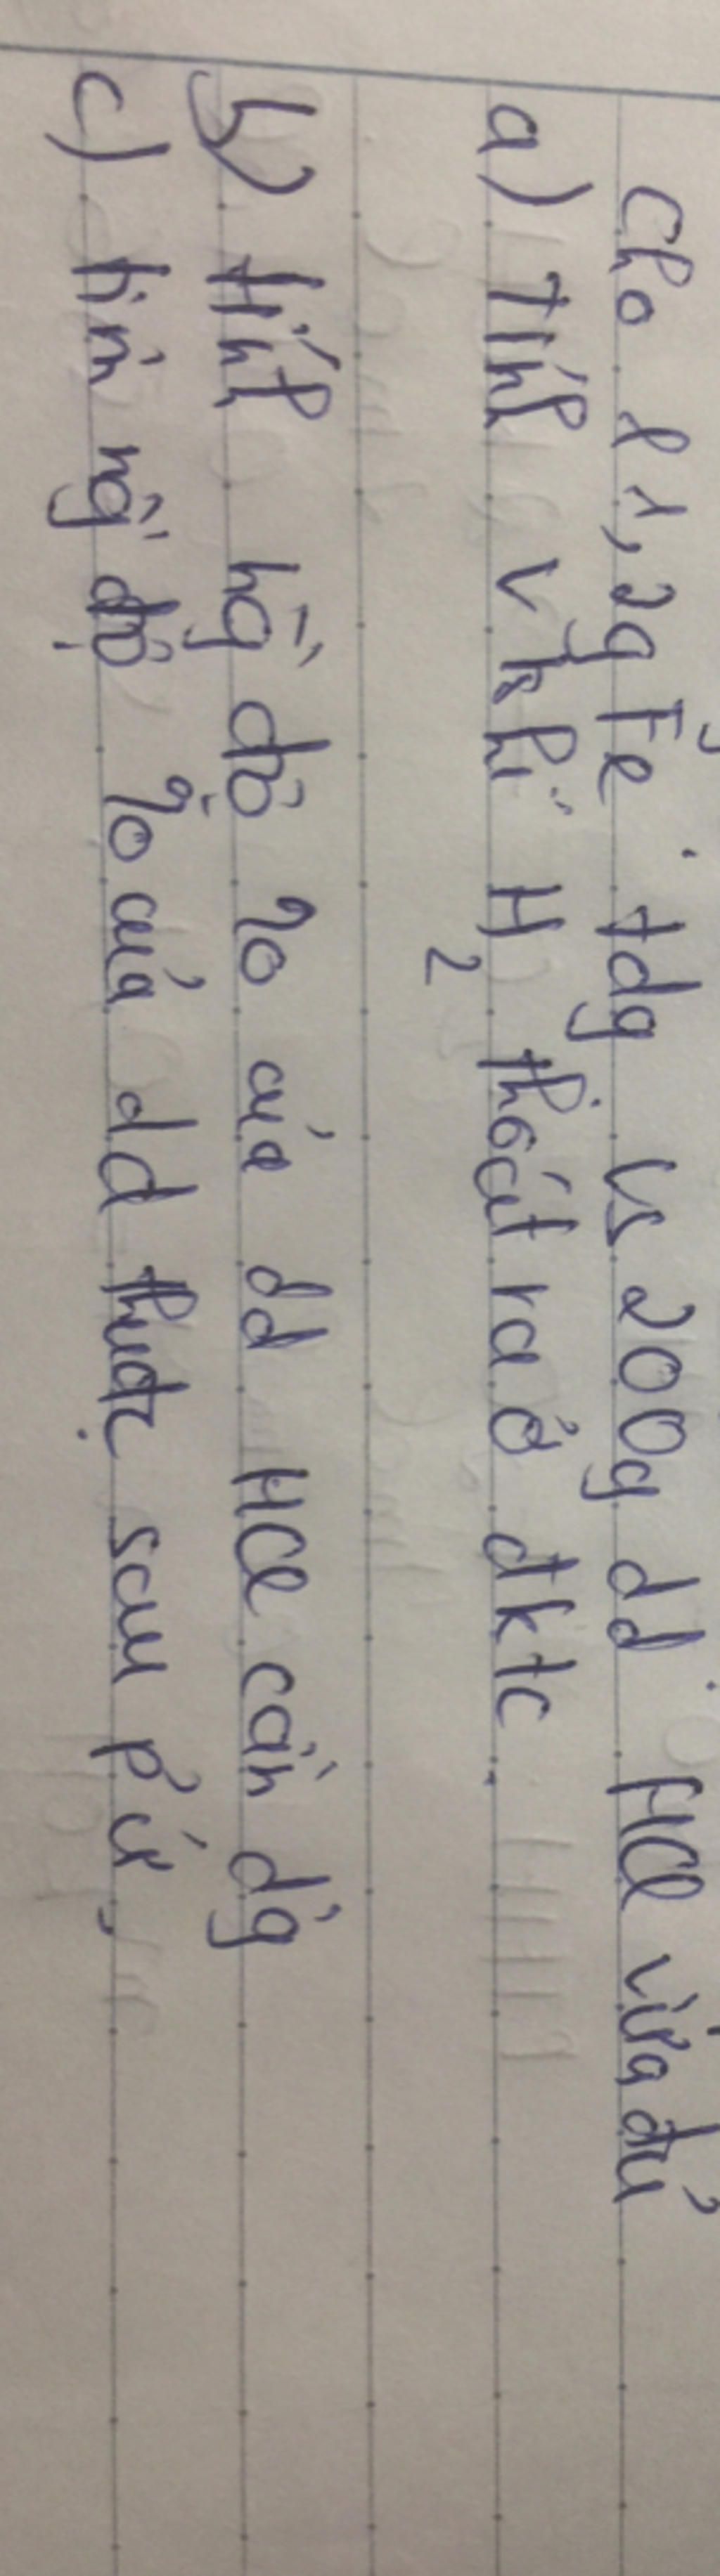 Cho 11,2g Fe tdg vs 200g dd HCl vừa đủ
a) Tính V khí H2 thoát ra ở đktc.
b) tính nồng độ % của dd HCl cần dg
c) tính nồng độ % của dd thu đc sau pứ.